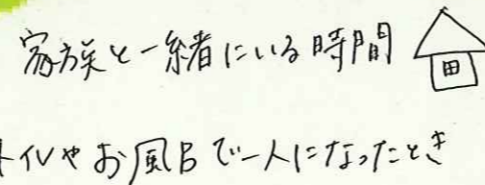 家族と一緒にいる時間
トイレやお風呂で一人になったとき